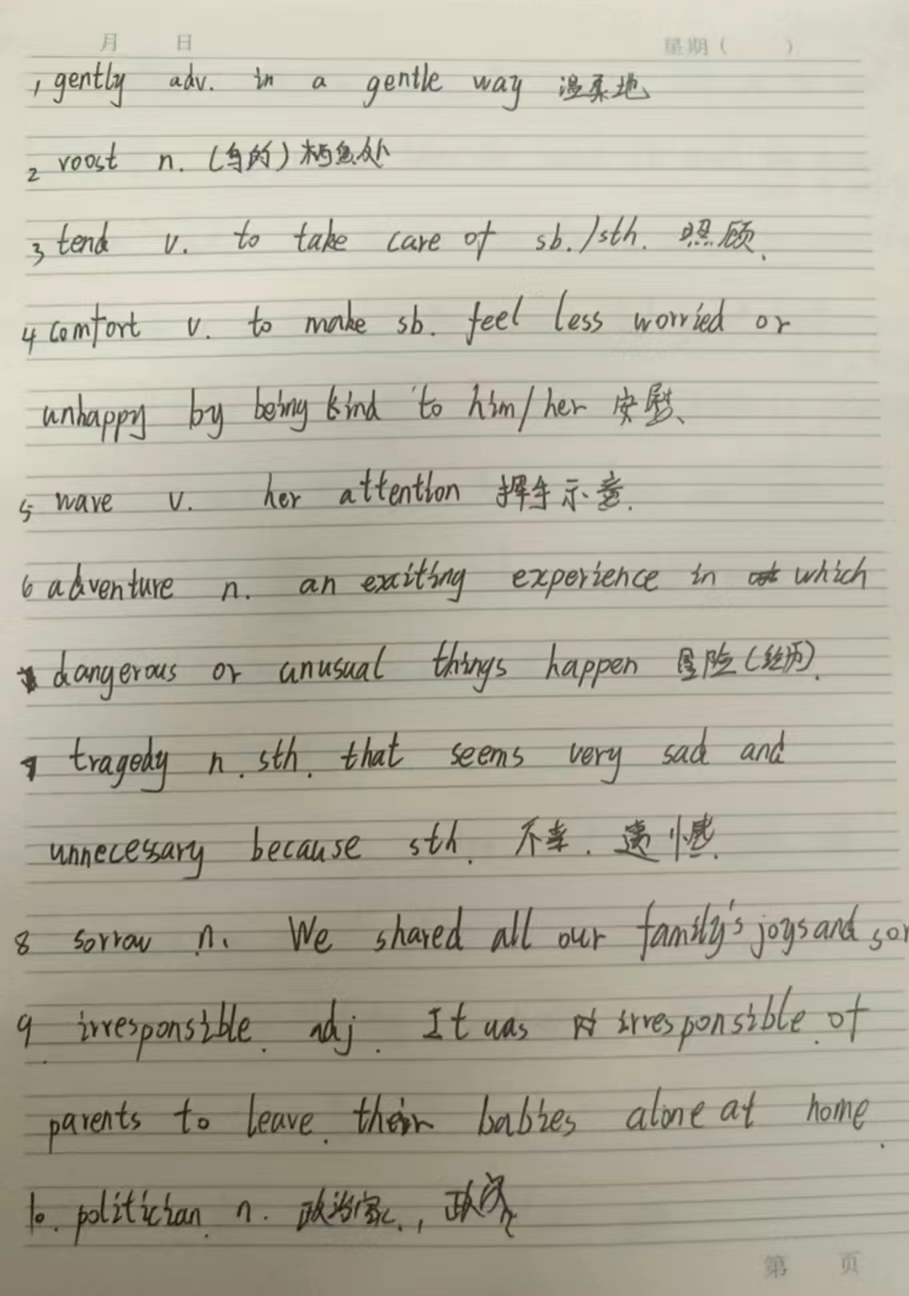 月 日 星期( )
1, gently adv. in a gentle way 温柔地
2 roost n. (鸟的)栖息处
3, tend v. to take care of sb./sth. 照顾.
4 comfort v. to make sb. feel less worried or
unhappy by being kind to him/her 安慰、
5 wave v. her attention 挥手示意.
6 adventure n. an exciting experience in which
dangerous or unusual things happen 冒险(经历).
7 tragedy n. sth. that seems very sad and
unnecessary because sth. 不幸. 遗憾.
8 sorrow n. We shared all our family's joys and sor
9. irresponsible. adj. It was irresponsible of
parents to leave their babies alone at home.
10. politician n. 政治家, 政客
第 页